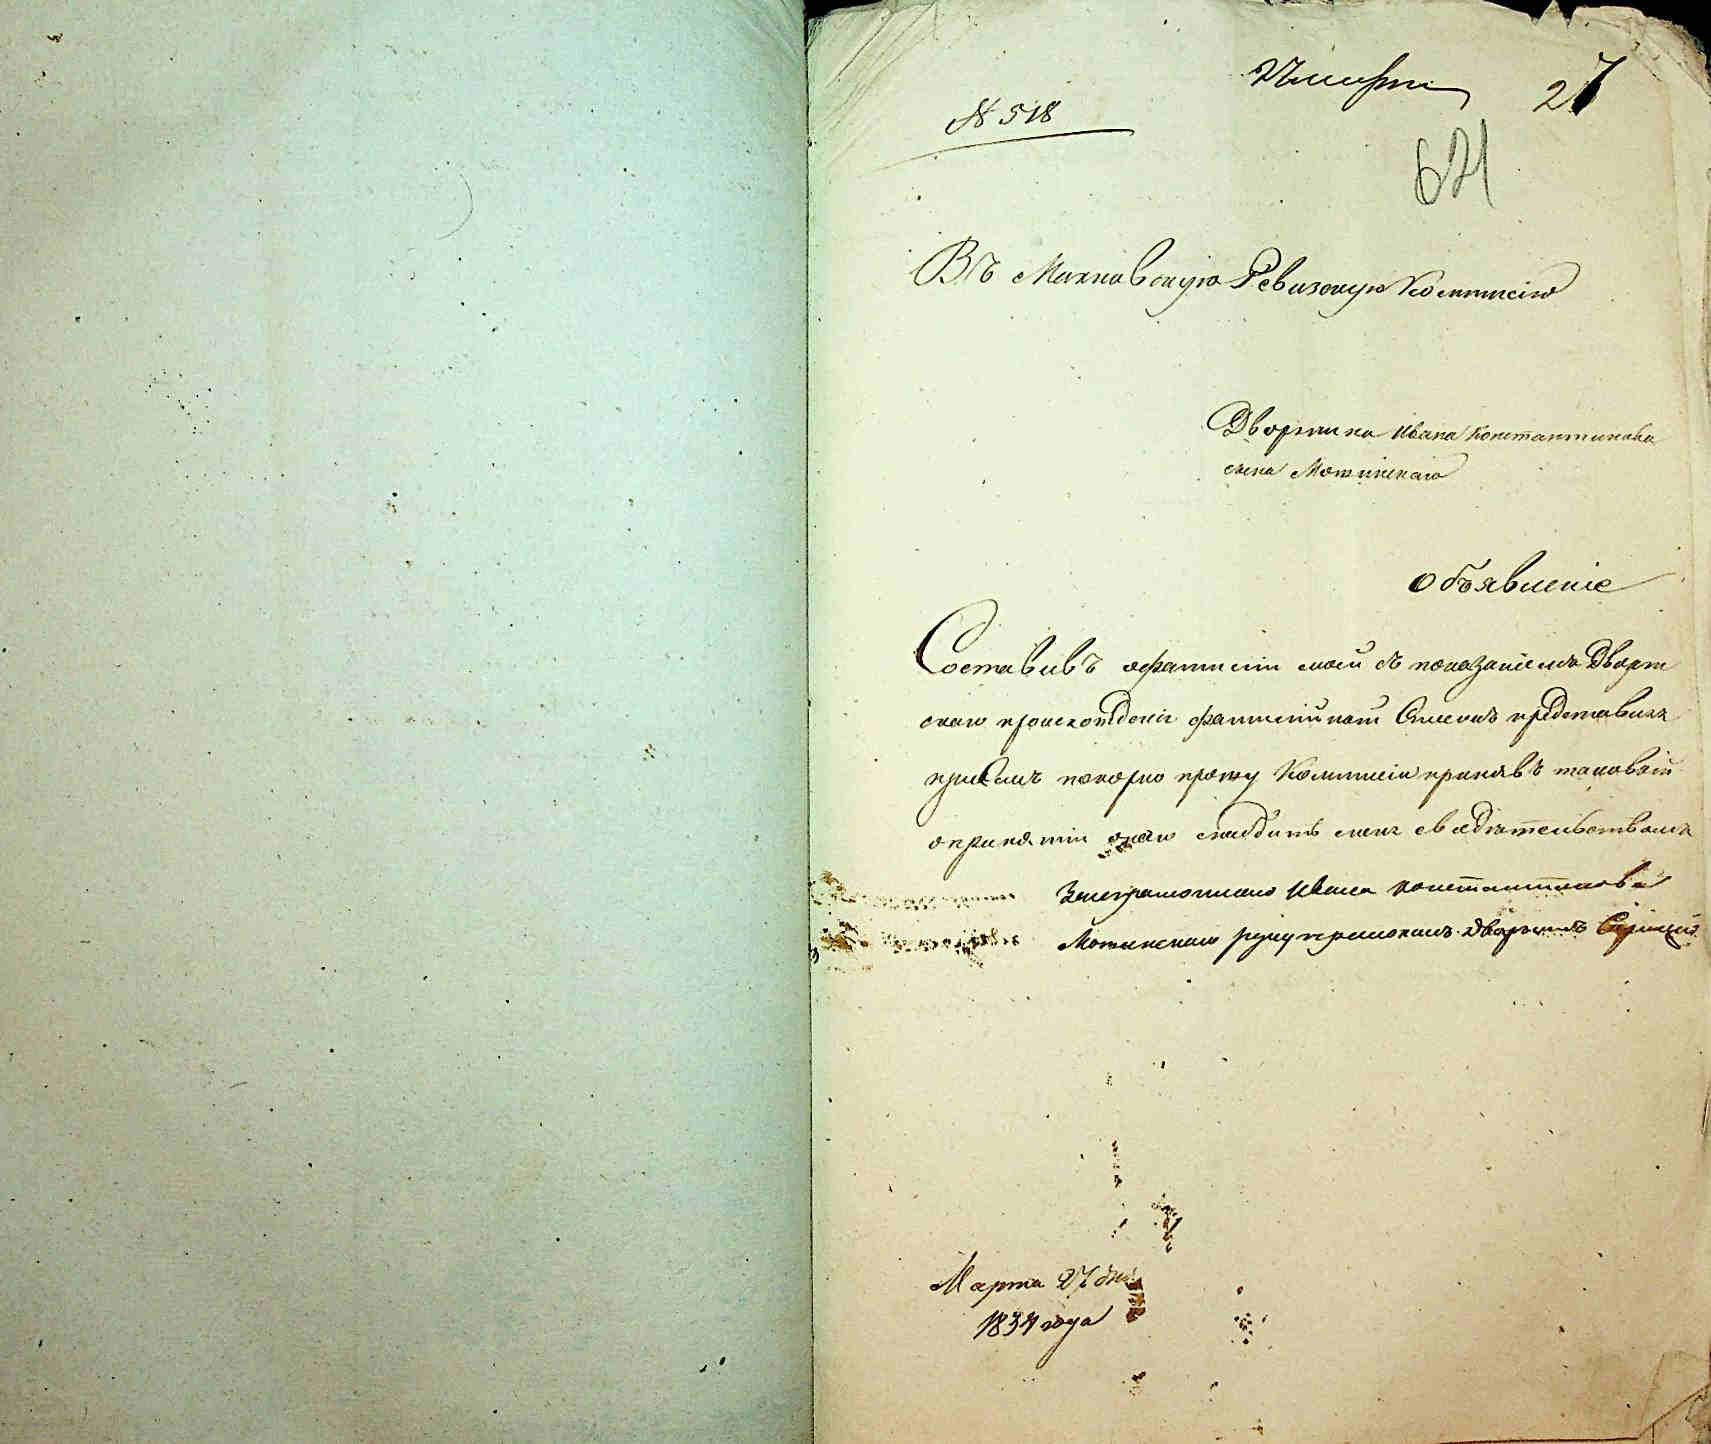 27 марта
27
№ 518
621
Въ Махновскую Ревизскую Коммисію
Дворянина Ивана Константинова
сына Мотинскаго
объявленіе
Составивъ о фамиліи моей съ показаніемъ дворян
скаго происхожденія фамилійный Списокъ представляя
при семъ покорно прошу Коммисіи принявъ таковый
о принятіи онаго снабдить меня свѣдѣтельствомъ
Неграмотнаго Ивана Константинова
Мотинскаго руку приложилъ дворянинъ
Марта 27 дня
1834 года